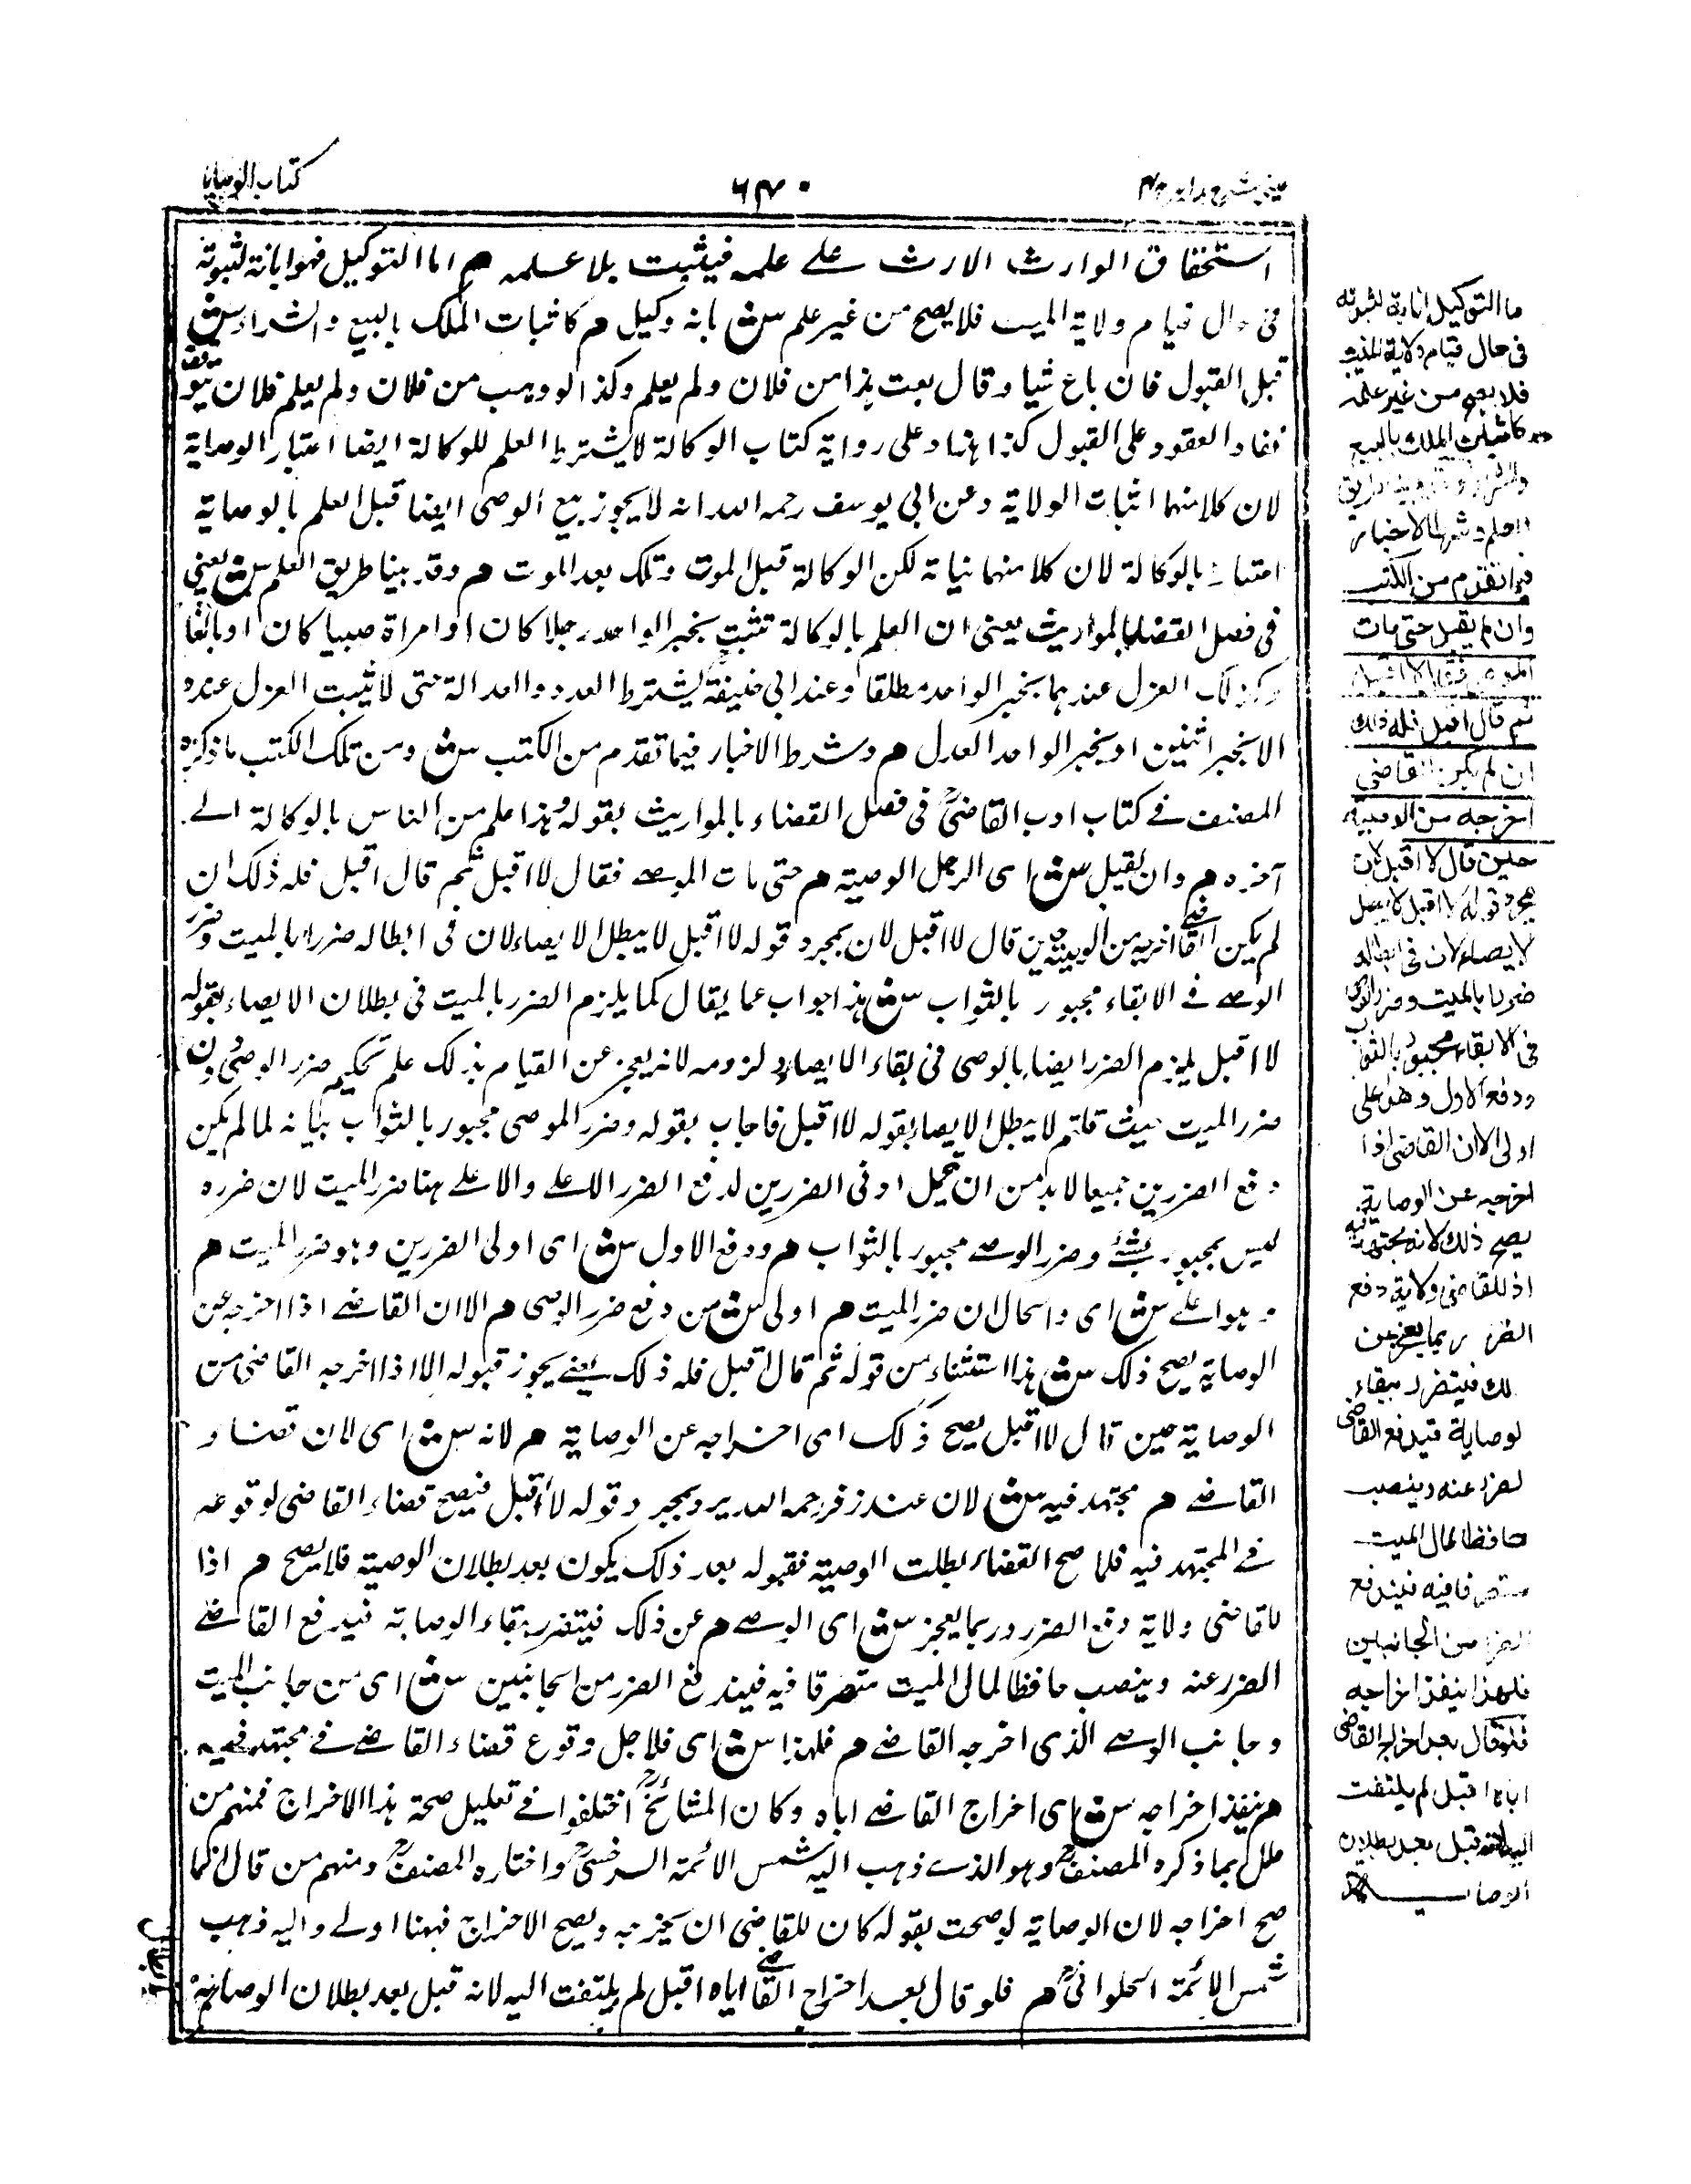 كتاب الوصايا
٦٤٠
عينى شرح هدايه ج ٤
استحقاق الوارث الارث على علمه فيثبت بلا علمه م اما التوكيل فهو انابة لثبوته
فى حال قيام ولاية الميت فلا يصح من غير علم ش بانه وكيل م كاثبات الملك بالبيع والشراء ش
قبل القبول فان باع شيا وقال بعت هذا من فلان ولم يعلم وكذا لو وهب من فلان ولم يعلم فلان يتوقف
نفاد العقود على القبول كذا هذا وعلى رواية كتاب الوكالة لا يشترط العلم للوكالة ايضا اعتبار الوصاية
لان كلا منهما اثبات الولاية وعن ابى يوسف رحمه الله انه لا يجوز بيع الوصى ايضا قبل العلم بالوصاية
اعتبارا بالوكالة لان كلا منهما نيابة لكن الوكالة قبل الموت وتلك بعد الموت م وقد بينا طريق العلم ش يعنى
فى فصل القضاء بالمواريث يعنى ان العلم بالوكالة تثبت بخبر الواحد رجلا كان او امراة صبيا كان او بالغا
وكذلك العزل عندهما بخبر الواحد مطلقا وعند ابى حنيفة يشترط العدد والعدالة حتى لا يثبت العزل عنده
الا بخبر اثنين او بخبر الواحد العدل م وشرط الاخبار فيما تقدم من الكتب ش ومن تلك الكتب ما ذكره
المصنف فى كتاب ادب القاضى فى فصل القضاء بالمواريث بقوله وهذا علم من الناس بالوكالة الے
آخره م وان لم يقبل ش اى الرجل الوصية م حتى مات الموصے فقال لا اقبل ثم قال اقبل فله ذلك ان
لم يكن القاضے اخرجه من الوصية حين قال لا اقبل لان بمجرد قوله لا اقبل لا يبطل الايصاء لان فى ابطاله ضررا بالميت وضرر
الوصے فى الابقاء مجبور بالثواب ش هذا جواب عما يقال كما يلزم الضرر بالميت فى بطلان الايصاء بقوله
لا اقبل يلزم الضرر ايضا بالوصى فى بقاء الايصاء ولزومه لانه يعجز عن القيام بذلك علم تحكيم ضرر الوصى دون
ضرر الميت حيث قلتم لا يبطل الايصاء بقوله لا اقبل فاجاب بقوله وضرر الموصى مجبور بالثواب بيانه لما لم يكن
دفع الضررين جميعا لا بد من ان تحمل ادنى الضررين لدفع الضرر الاعلے والاعلے هنا ضرر الميت لان ضرره
ليس بمجبور بشئ وضرر الوصے مجبور بالثواب م ودفع الاول ش اى اولى الضررين وهو ضرر الميت م
وهو اعلے ش اى والحال ان ضرر الميت م اولى ش من دفع ضرر الوصى م الا ان القاضے اذا اخرجه عن
الوصاية يصح ذلك ش هذا استثناء من قوله ثم قال اقبل فله ذلك يعنے يجوز قبوله الا اذا اخرجه القاضى من
الوصاية حين قال لا اقبل يصح ذلك اى اخراجه عن الوصاية م لانه ش اى لان قضاء
القاضے م مجتهد فيه ش لان عند زفر رحمه الله يرد بمجرد قوله لا اقبل فيصح قضاء القاضى لوقوعه
فى المجتهد فيه فلما صح القضاء بطلت الوصية فقبوله بعد ذلك يكون بعد بطلان الوصية فلا يصح م اذا
لاقاضى ولاية دفع الضرر وربما يعجز ش اى الوصے م عن ذلك فيتضرر ببقاء الوصاية فيدفع القاضے
الضرر عنه وينصب حافظا لمال الميت متصرفا فيه فيندفع الضرر من الجانبين ش اى من جانب الميت
وجانب الوصے الذى اخرجه القاضے م فلهذا ش اى فلاجل وقوع قضاء القاضے فى مجتهد فيه
م ينفذ اخراجه ش اى اخراج القاضے اياه وكان المشائخ اختلفوا فى تعليل صحة هذا الاخراج فمنهم من
علل بما ذكره المصنف وهو الذے ذهب اليه شمس الائمة السرخسى واختاره المصنف ومنهم من قال انما
صح اخراجه لان الوصاية لو صحت بقوله كان للقاضى ان يخرجه ويصح الاخراج فههنا اولے واليه ذهب
شمس الائمة الحلوانى م فلو قال بعد اخراج القاضے اياه اقبل لم يلتفت اليه لانه قبل بعد بطلان الوصاية
ما التوكيل انابة لثبوته
فى حال قيام ولاية المنيب
فلا يصح من غير علمه
كاثبات الملك بالبيع
العلم وشرط الاخبار
فيما تقدم من الكتب
وان لم يقبل حتى مات
الموصى فقال لا اقبل
ثم قال اقبل فله ذلك
ان لم يكن القاضى
اخرجه من الوصية
حين قال لا اقبل لان
بمجرد قوله لا اقبل لا يبطل
الايصاء لان فى ابطاله
ضررا بالميت وضرر الوصى
فى الابقاء مجبور بالثواب
ودفع الاول وهو اعلى
اولى الا ان القاضى اذا
اخرجه عن الوصاية
يصح ذلك لانه مجتهد فيه
اذ للقاضى ولاية دفع
الضرر ربما يعجز عن
لك فيتضرر ببقاء
لوصاية فيدفع القاضى
لضرر عنه وينصب
حافظا لمال الميت
متصرفا فيه فيندفع
الضرر من الجانبين
فلهذا ينفذ اخراجه
فلو قال بعد اخراج القاضى
اياه اقبل لم يلتفت
اليه لانه قبل بعد بطلان
الوصاية